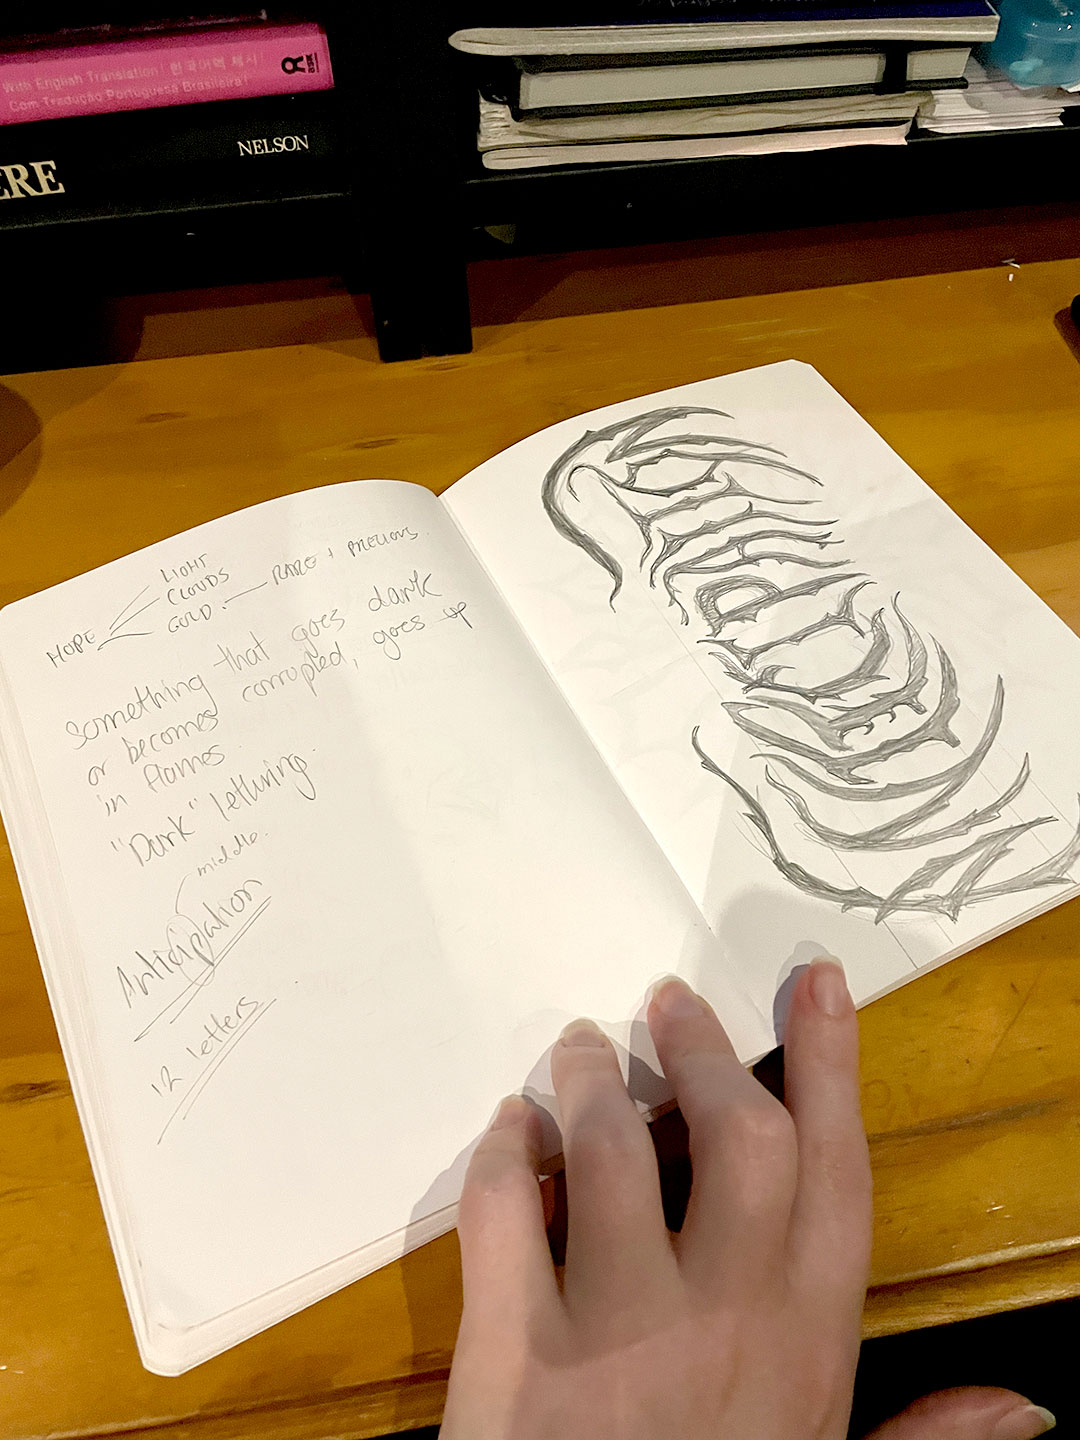 With English Translation! 한국어역 제시!
Com Tradução Portuguesa Brasileira!
NELSON
ERE
HOPE
LIGHT
CLOUDS
GOLD. RARE + PRECIOUS.
Something that goes dark
or becomes corrupted, goes up
in flames.
"Dark" lettering.
middle.
Anticipation
12 letters